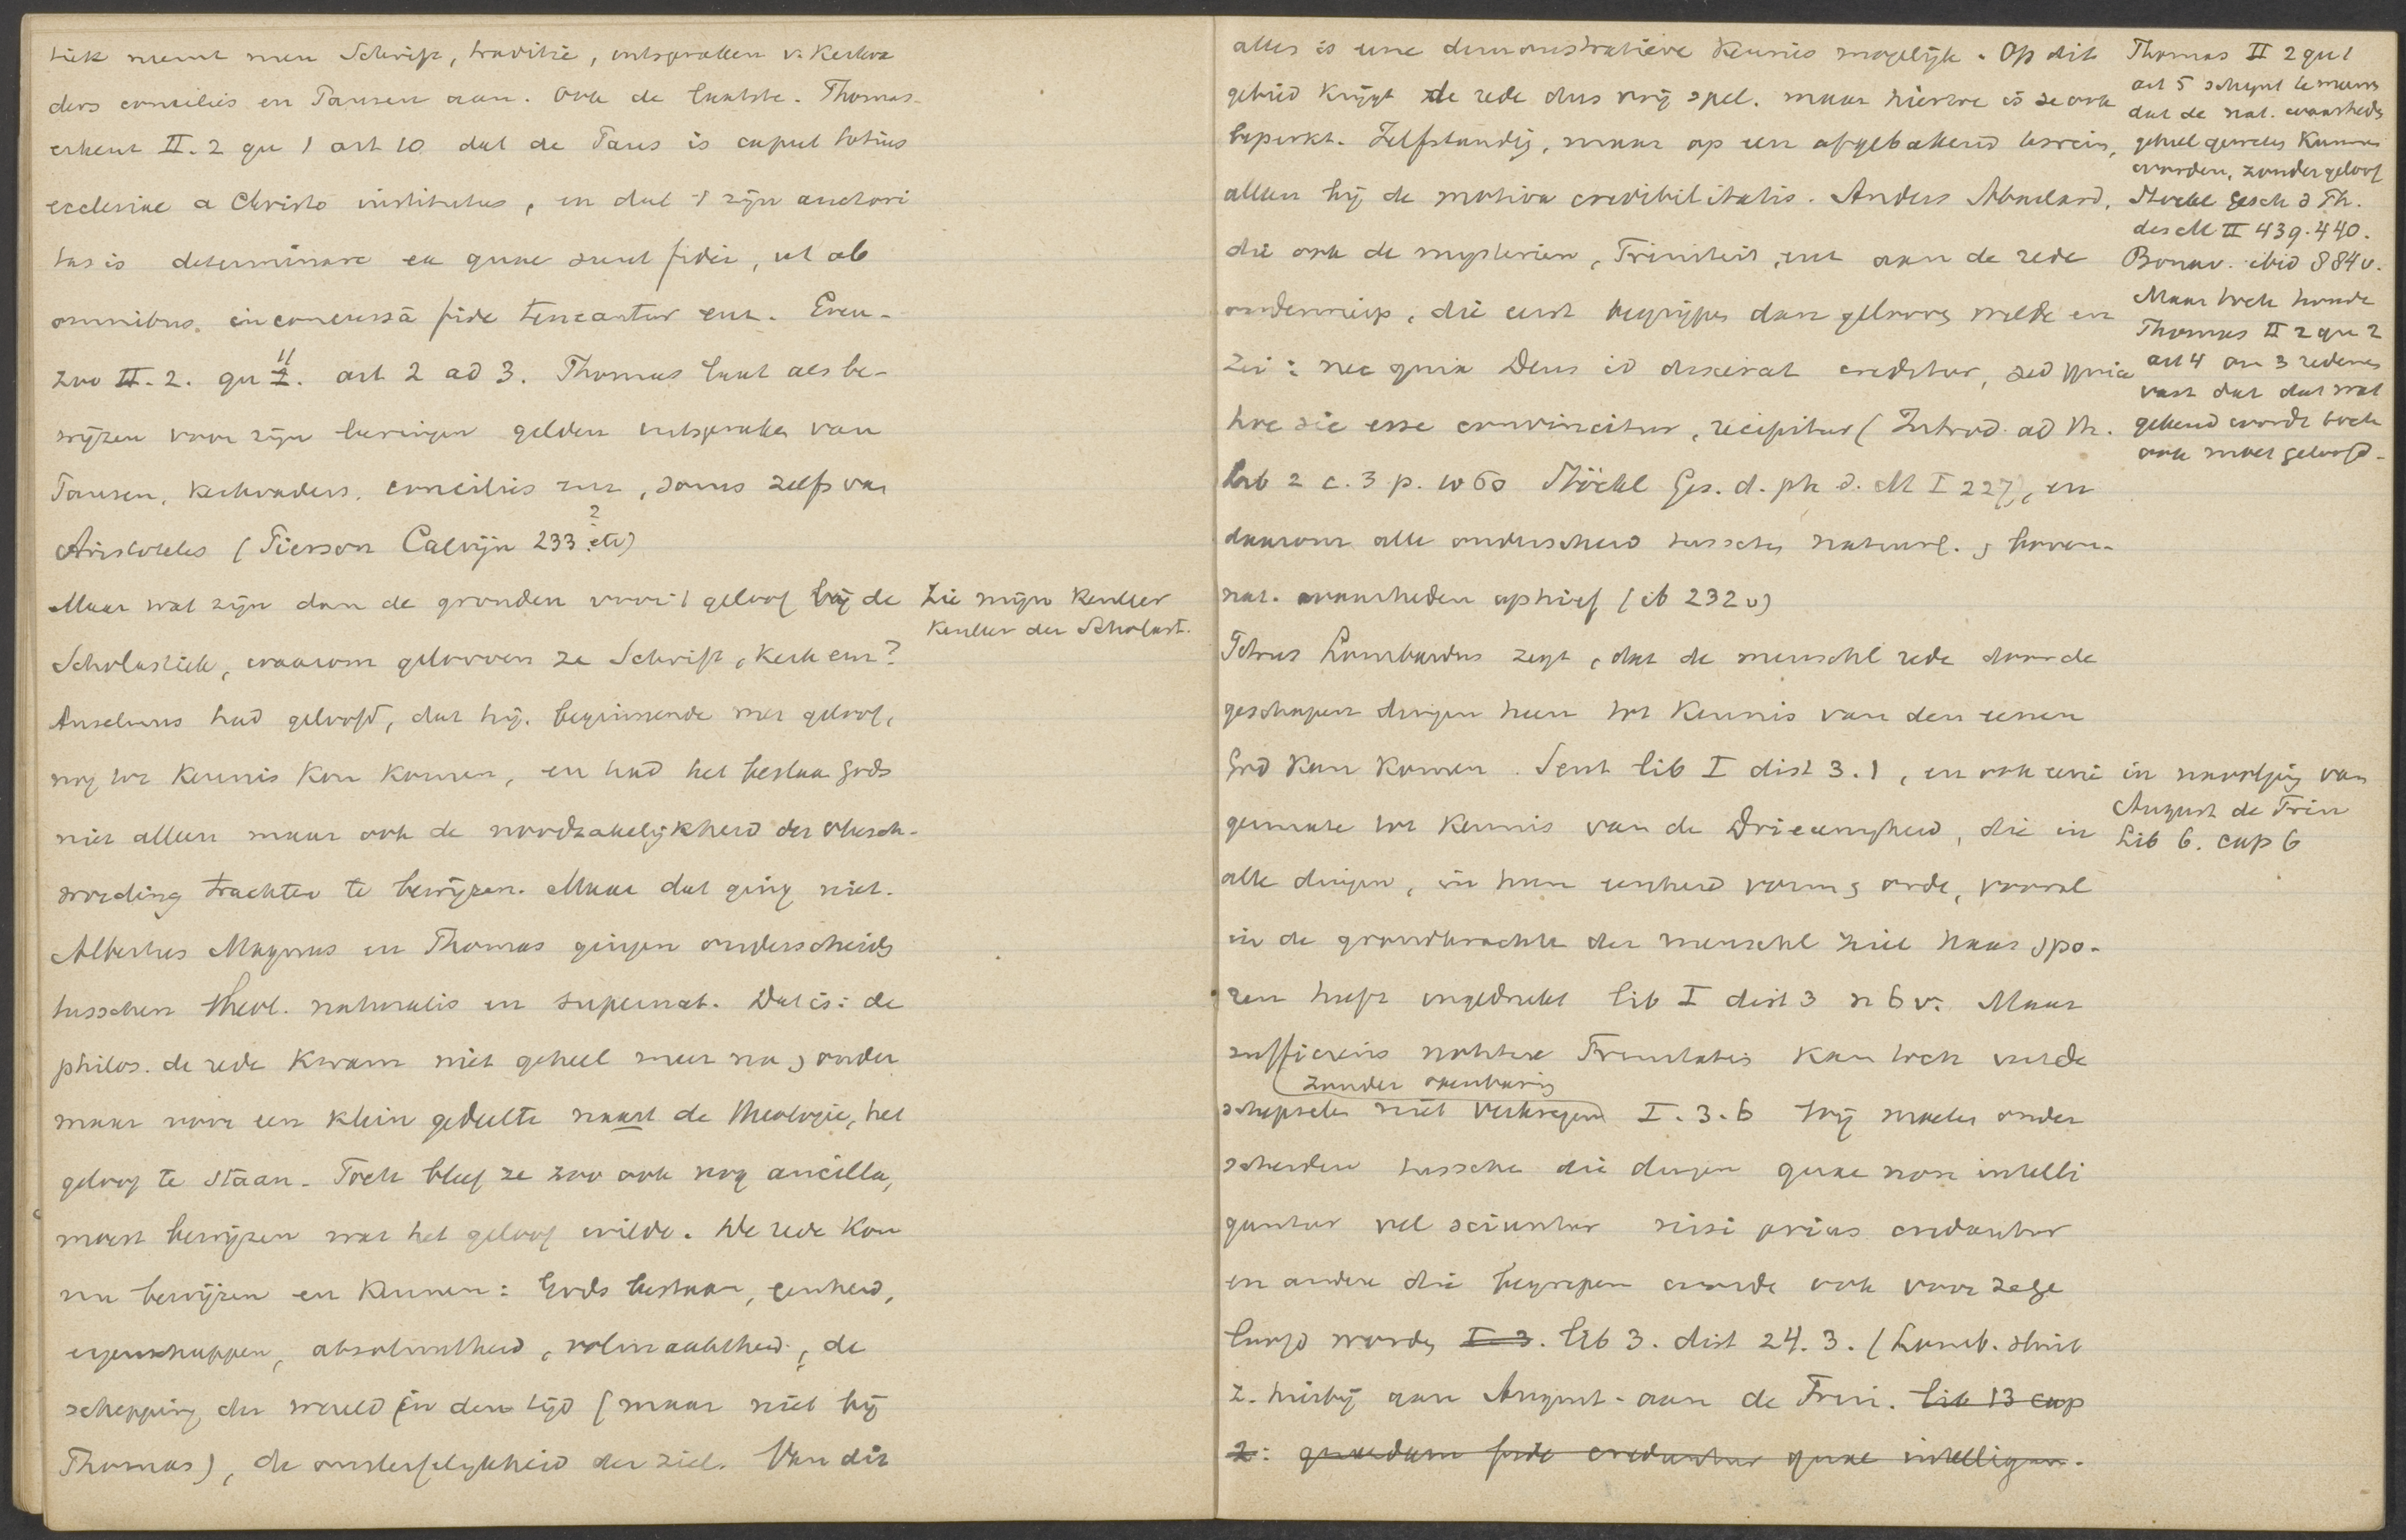 tiek neemt men Schrift, traditie, uitspraken v. Kerkva
ders concilies en Pausen aan. Ook de laatste. Thomas
erkent II. 2 qu 1 art 10 dat de Paus is caput totius
ecclesiae a Christo institutus, en dat 't zijn auctori
tas is determinare ea quae sunt fidei, ut ab
omnibus inconcussâ fide teneantur enz. Even-
zoo II. 2. qu 11. art 2 ad 3. Thomas laat als be-
wijzen voor zijn leeringen gelden uitspraken van
Pausen, Kerkvaders, concilies enz, soms zelfs van
Aristoteles (Pierson Calvijn 233 2 etc)
Maar wat zijn dan de gronden voor 't geloof bij de
Scholastiek, waarom gelooven ze Schrift, Kerk enz?
Zie mijn Kenleer
Kenleer der Scholast.
Anselmus had geloofd, dat hij, beginnende met geloof,
nog tot Kennis kon komen, en had het bestaan Gods
niet alleen maar ook de noodzakelijkheid der Mensch-
wording trachten te bewijzen. Maar dat ging niet.
Albertus Magnus en Thomas gingen onderscheiden
tusschen theol. naturalis en supernat. Dat is: de
philos. de rede kwam niet geheel meer na, onder
maar voor een klein gedeelte naast de theologie, het
geloof te staan. Toch bleef ze zoo ook nog ancilla,
moest bewijzen wat het geloof wilde. De rede kon
nu bewijzen en kennen: Gods bestaan, eenheid,
eigenschappen, absoluutheid, volmaaktheid, de
schepping der wereld in den tijd (maar niet bij
Thomas), de onsterfelijkheid der ziel. Van dit
alles is eene demonstratieve Kennis mogelijk. Op dit
gebied krijgt de rede dus vrij spel. maar hiertoe is ze ook
beperkt. Zelfstandig, maar op een afgebakend terrein,
alleen bij de motiva credibilitatis. Anders Abaelard,
die ook de mysteriën, Triniteit, enz aan de rede
onderwierp, die eerst begrijpen dan gelooven wilde en
zei: nec quia Deus id dixerat creditur, sed quia
hoc sic esse convincitur, recipitur (Introd. ad th.
lib 2 c. 3 p. 1060 Stöckl Ges. d. ph d. M I 227), en
daarom alle onderscheid tusschen natuurl. & boven-
nat. waarheden ophief (ib 232 v)
Thomas II 2 qu 1
art 5 schijnt te meenen
dat de nat. waarheden
geheel geweten kunnen
worden, zonder geloof
Stöckl Gesch d Ph.
des M II 439. 440.
Bonav. ibid 884 v.
Maar toch houdt
Thomas II 2 qu 2
art 4 om 3 redenen
vast dat dat wat
gekend wordt toch
ook moet geloofd.
Petrus Lombardus zegt, dat de menschl rede door de
geschapen dingen heen tot Kennis van den eenen
God kan komen. Sent lib I dist 3. 1, en ook eeni
germate tot Kennis van de Drieeenigheid, die in
alle dingen, in hun eenheid vorm & orde, vooral
in de grondkrachten der menschl ziel haar spo-
ren heeft ingedrukt lib I dist 3 n 6 v. Maar
in navolging van
August de Trin
Lib 6. cap 6
sufficiens notitia Trinitatis kan toch uit de
zonder openbaring
schepselen niet verkregen I. 3. 6 Wij moeten onder
scheiden tusschen die dingen quae non intelli
guntur vel sciuntur nisi prius credantur
en andere die begrepen worden ook voor ze ge
loofd worden I 3. lib 3. dist 24. 3. (Lomb. sluit
z. hierbij aan August. aan de Trin. lib 13 cap
2: quaedam fide creduntur quae intelligun.